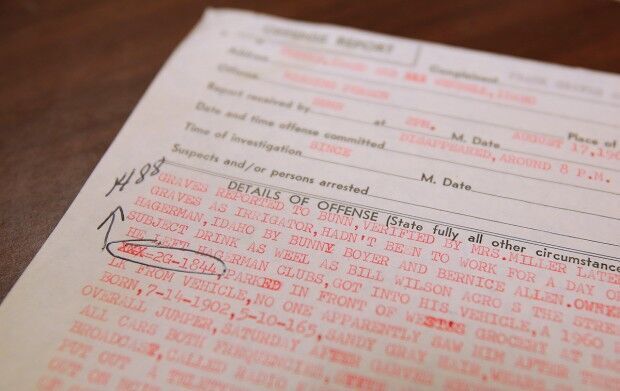 OFFENSE REPORT
Address
Complainant
Offense MISSING PERSON
Report received by BUNN at 2PM. M. Date AUGUST 17,19
Date and time offense committed DISAPPEARED, AROUND 8 P.M. Place of
Time of investigation SINCE M. Date
Suspects and/or persons arrested M. Date
DETAILS OF OFFENSE (State fully all other circumstance
H 88
GRAVES REPORTED TO BUNN, VERIFIED BY MRS.MILLER LATE
GRAVES AS IRRIGATOR, HADN'T BEEN TO WORK FOR A DAY O
HAGERMAN, IDAHO BY BUNNY BOYER AND BERNICE ALLEN. OWNE
SUBJECT DRINK AS WEEL AS BILL WILSON ACRO S THE STRE
HE LEFT HAGERMAN CLUBS, GOT INTO HIS VEHICLE, A 1960
=2G-1844, PARKED IN FRONT OF WEST'S GROCERY AT
LK FROM VEHICLE, NO ONE APPARENTLY SAW HIM AFTER
BORN, 7-14-1902, 5-10-165, SANDY GRAY HAIR, WE
OVERALL JUMPER, SATURDAY AFTER
ALL CARS BOTH FREQUENCIES.
BROADCAST, CALLED RADIO
PUT OUT A TELETYPE
OF